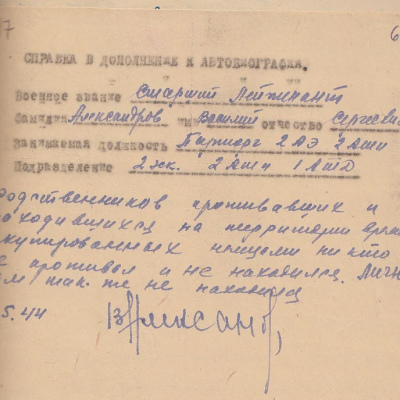 7 6
СПРАВКА В ДОПОЛНЕНИЕ К АВТОБИОГРАФИИ.
Военное звание Старший Лейтинант
Фамилия Александров имя Василий отчество Сергеевич
Занимаемая должность Парторг 2 АЭ 2 АШП
Подразделение 2 эск. 2 АШП 1 АШД
родственников проживавших и
находившихся на территории врем
оккупированных немцами ни кто
не проживал и не находился. Личн
сам так же не находился
5.44
ВАлександр